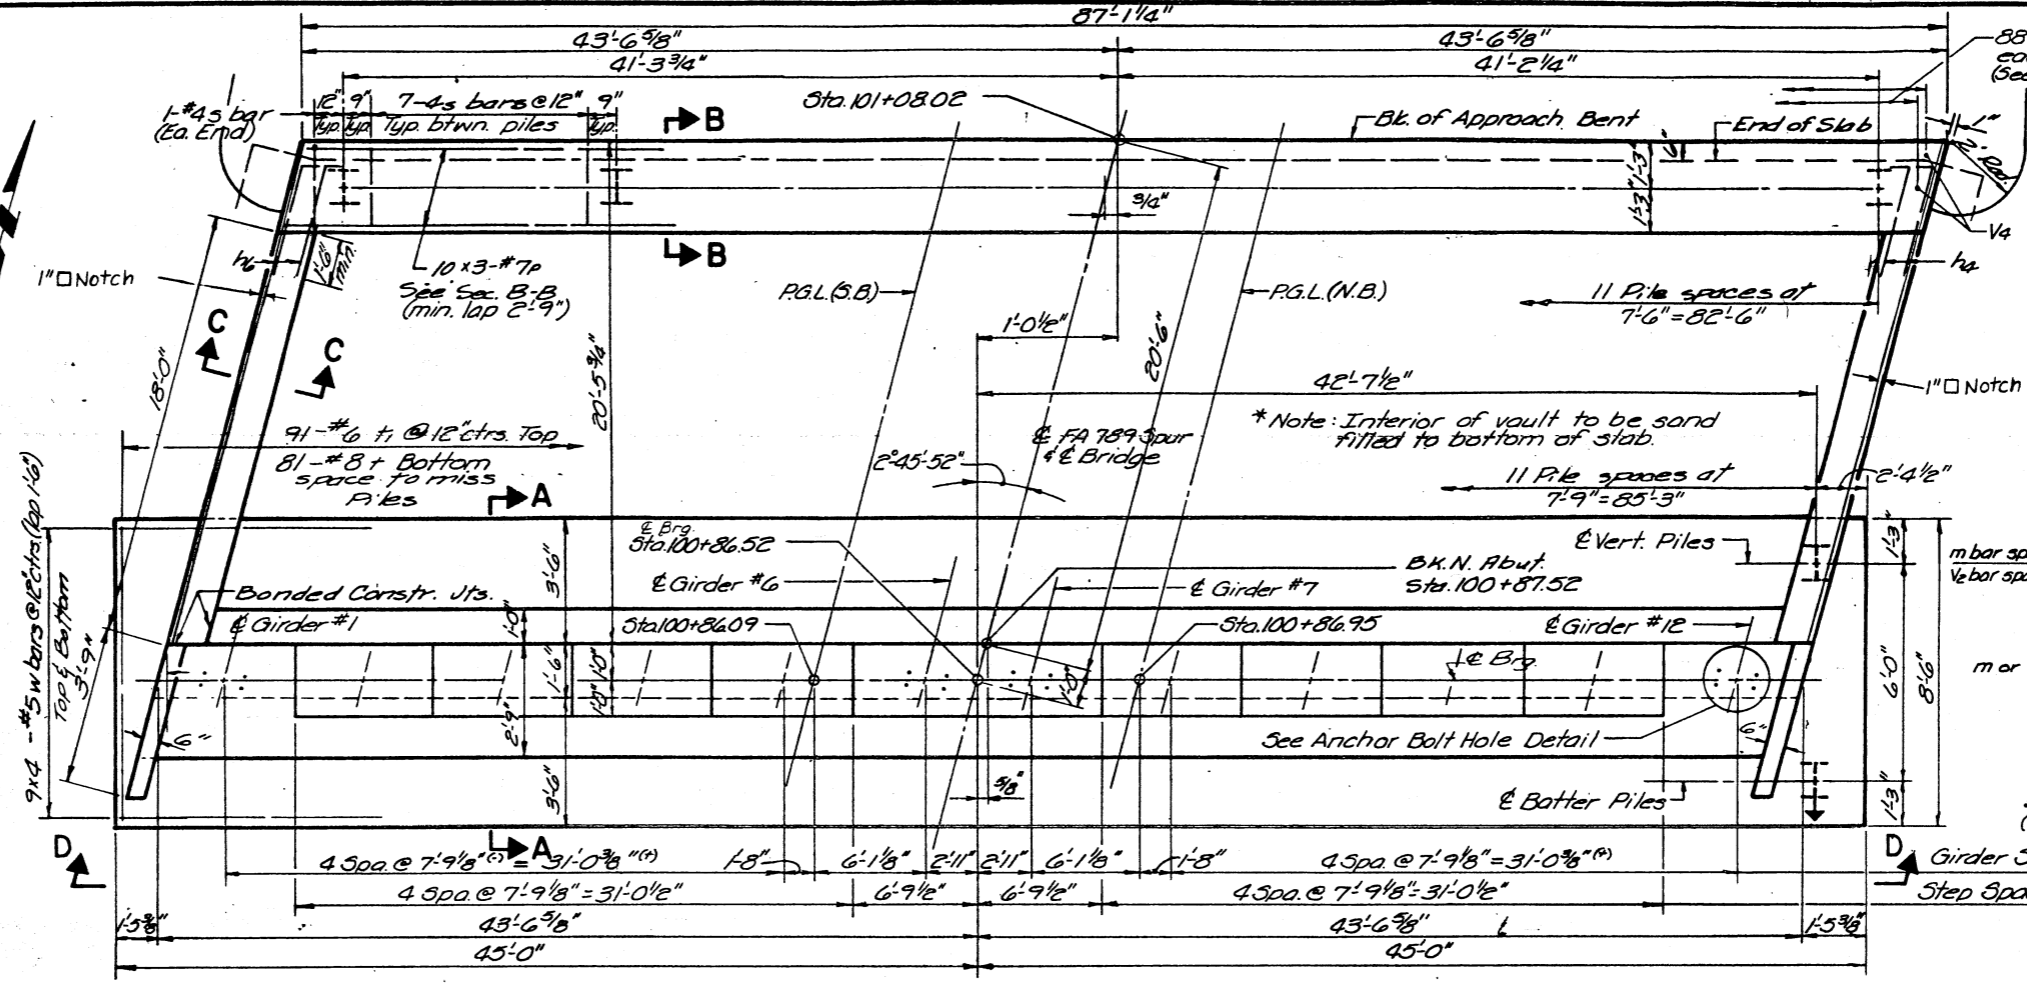 87'-1 1/4"
43'-6 5/8"
43'-6 5/8"
41'-3 3/4"
41'-2 1/4"
88
ea
(See
1-#4 s bar
(Ea. End)
12" 9" 7-4s bars @ 12" 9"
Typ. Typ. Typ. btwn. piles Typ.
B
Sta. 101+08.02
Bk. of Approach Bent
End of Slab
6"
1"
2' Rad.
3/4"
1'-3" 1'-3"
V4
h6
1'-6"
min.
B
h4
1" □ Notch
10 x 3-#7p
See Sec. B-B
(min. lap 2'-9")
P.G.L. (S.B.)
P.G.L. (N.B.)
11 Pile spaces at
7'-6" = 82'-6"
C
C
1'-0 1/2"
20'-6"
18'-0"
20'-5 3/4"
42'-7 1/2"
1" □ Notch
* Note: Interior of vault to be sand
filled to bottom of slab.
91-#6 t1 @ 12" ctrs. Top
81-#8 t Bottom
space to miss
Piles
℄ FA 789 Spur
& ℄ Bridge
2°45'-52"
11 Pile spaces at
7'-9" = 85'-3"
2'-4 1/2"
A
9x4 -#5 w bars @ 12" ctrs. (lap 1'-6")
Top & Bottom
3'-9"
3'-6"
℄ Brg.
Sta. 100+86.52
℄ Vert. Piles
1'-3"
m bar sp
V2 bar spa
℄ Girder #6
BK. N. Abut.
Sta. 100+87.52
℄ Girder #7
Bonded Constr. Jts.
℄ Girder #1
1'-0"
Sta 100+86.09
Sta. 100+86.95
℄ Girder #12
℄ Brg.
1'-6"
1'-0"
1'-0"
1'-0"
6'-0"
8'-6"
m or
2'-9"
6"
6"
See Anchor Bolt Hole Detail
3'-6"
5/8"
℄ Batter Piles
1'-3"
D
A
4 Spa. @ 7'-9 1/8" (-) = 31'-0 3/8" (+)
1'-8"
6'-1 1/8"
2'-11"
2'-11"
6'-1 1/8"
1'-8"
4 Spa. @ 7'-9 1/8" = 31'-0 3/8" (+)
D
Girder S
4 Spa. @ 7'-9 1/8" = 31'-0 1/2"
6'-9 1/2"
6'-9 1/2"
4 Spa. @ 7'-9 1/8" = 31'-0 1/2"
Step Spa
1'-5 3/8"
43'-6 5/8"
43'-6 5/8"
1'-5 3/8"
45'-0"
45'-0"